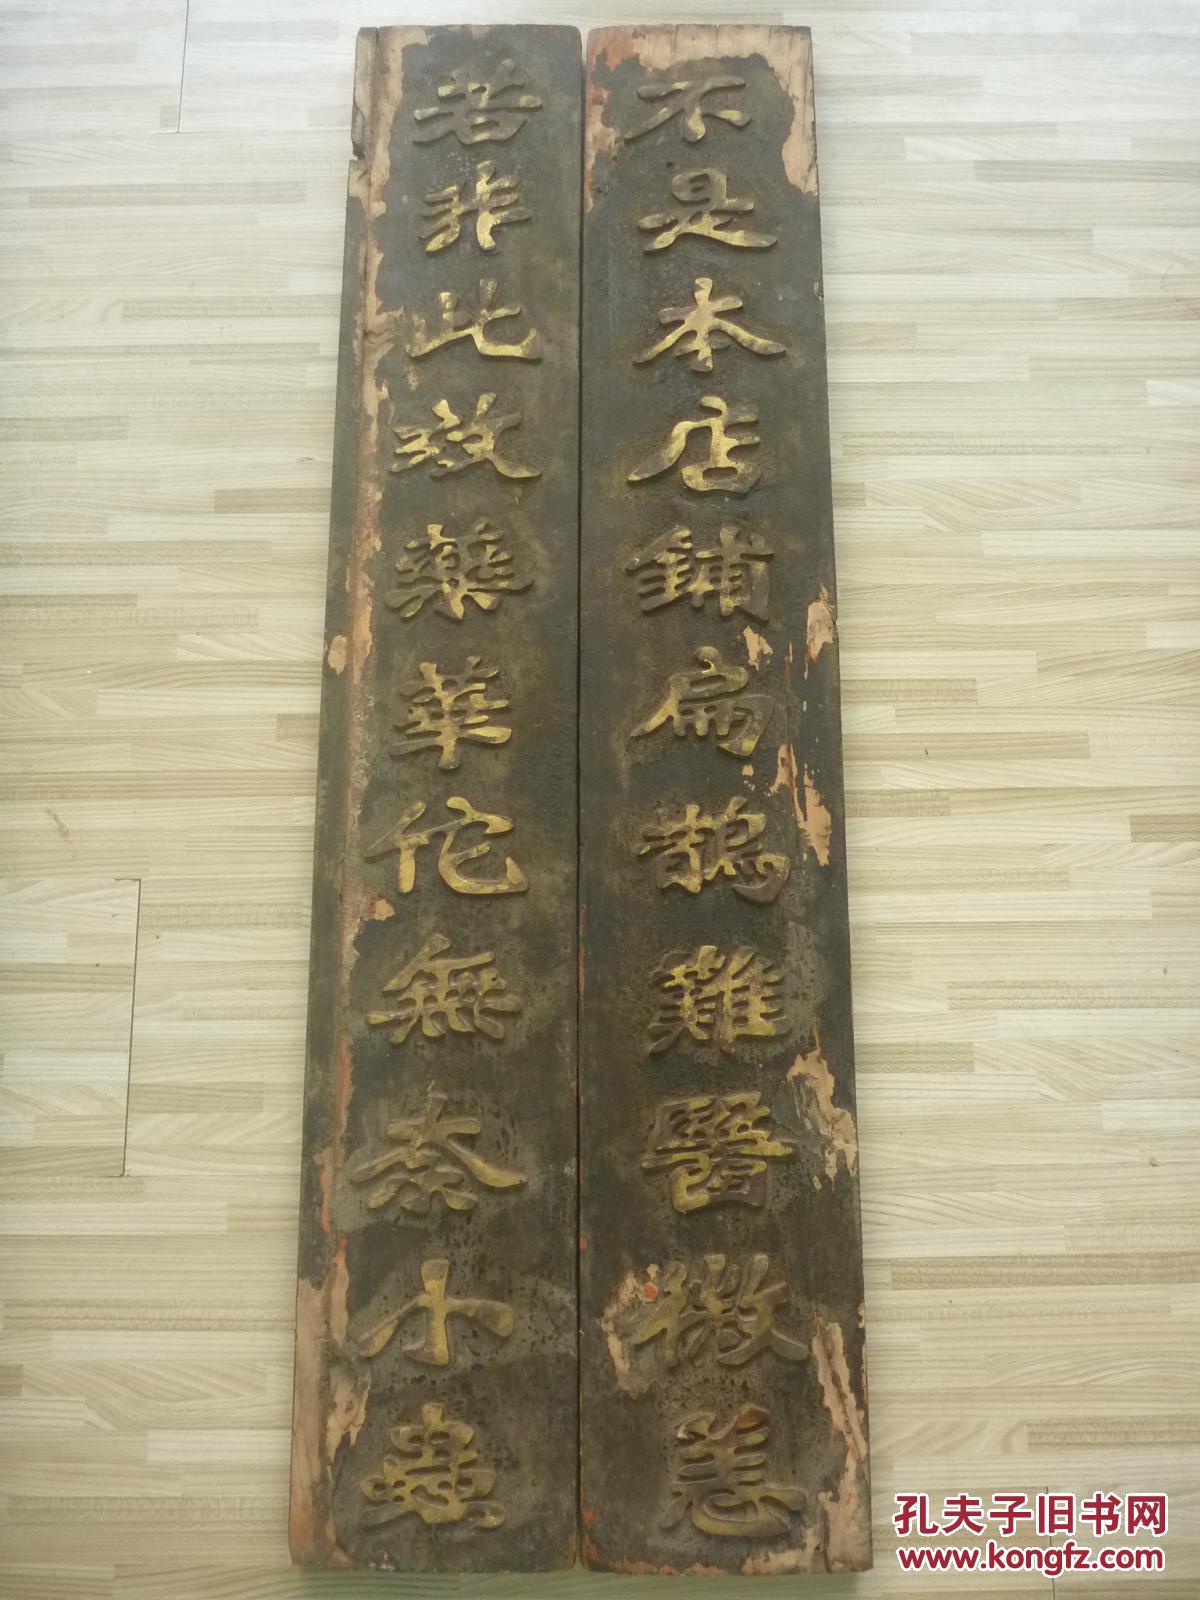 不是本店鋪扁鵲難醫微恙
若非此效藥華佗無奈小蟲
孔夫子旧书网
www.kongfz.com